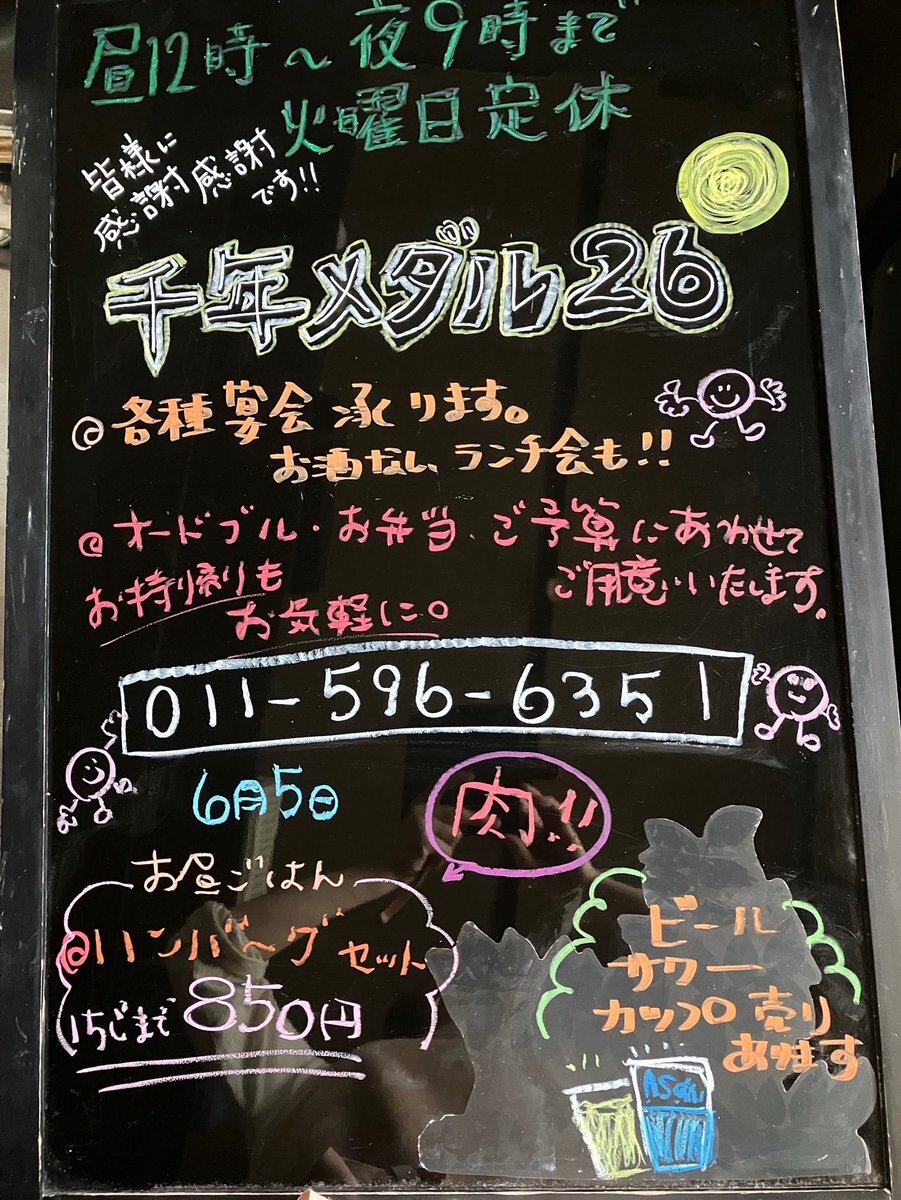 昼12時～夜9時まで
火曜日定休
皆様に
感謝感謝
です!!
千年メダル26
@各種宴会承ります。
お酒なし、ランチ会も!!
@オードブル・お弁当、ご予算にあわせて
ご用意いたします。
お持帰りも
お気軽に。
011-596-6351
6月5日
肉!!
お昼ごはん
@ハンバーグセット
15じまで850円
ビール
サワー
カップ売り
あります
Asahi